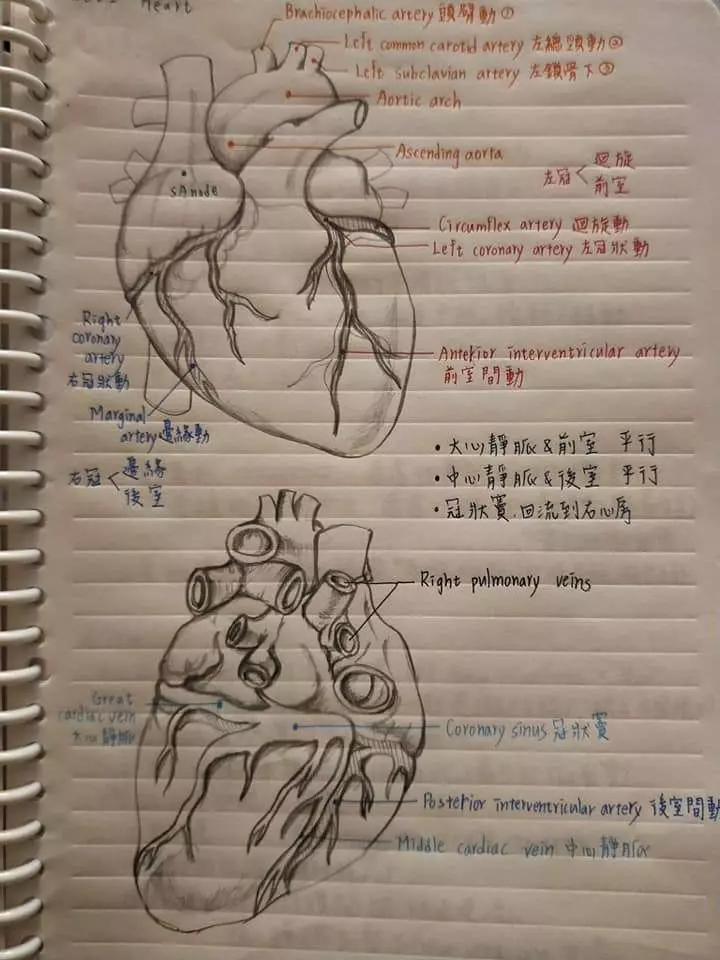 Heart
Brachiocephalic artery 頭臂動①
Left common carotid artery 左總頸動②
Left subclavian artery 左鎖骨下③
Aortic arch
Ascending aorta
左冠
迴旋
前室
SA node
Circumflex artery 迴旋動
Left coronary artery 左冠狀動
Right
coronary
artery
右冠狀動
Anterior interventricular artery
前室間動
Marginal
artery 邊緣動
右冠
邊緣
後室
• 大心靜脈 & 前室 平行
• 中心靜脈 & 後室 平行
• 冠狀竇.回流到右心房
Right pulmonary veins
Great
cardiac vein
大心靜脈
Coronary sinus 冠狀竇
Posterior interventricular artery 後室間動
Middle cardiac vein 中心靜脈